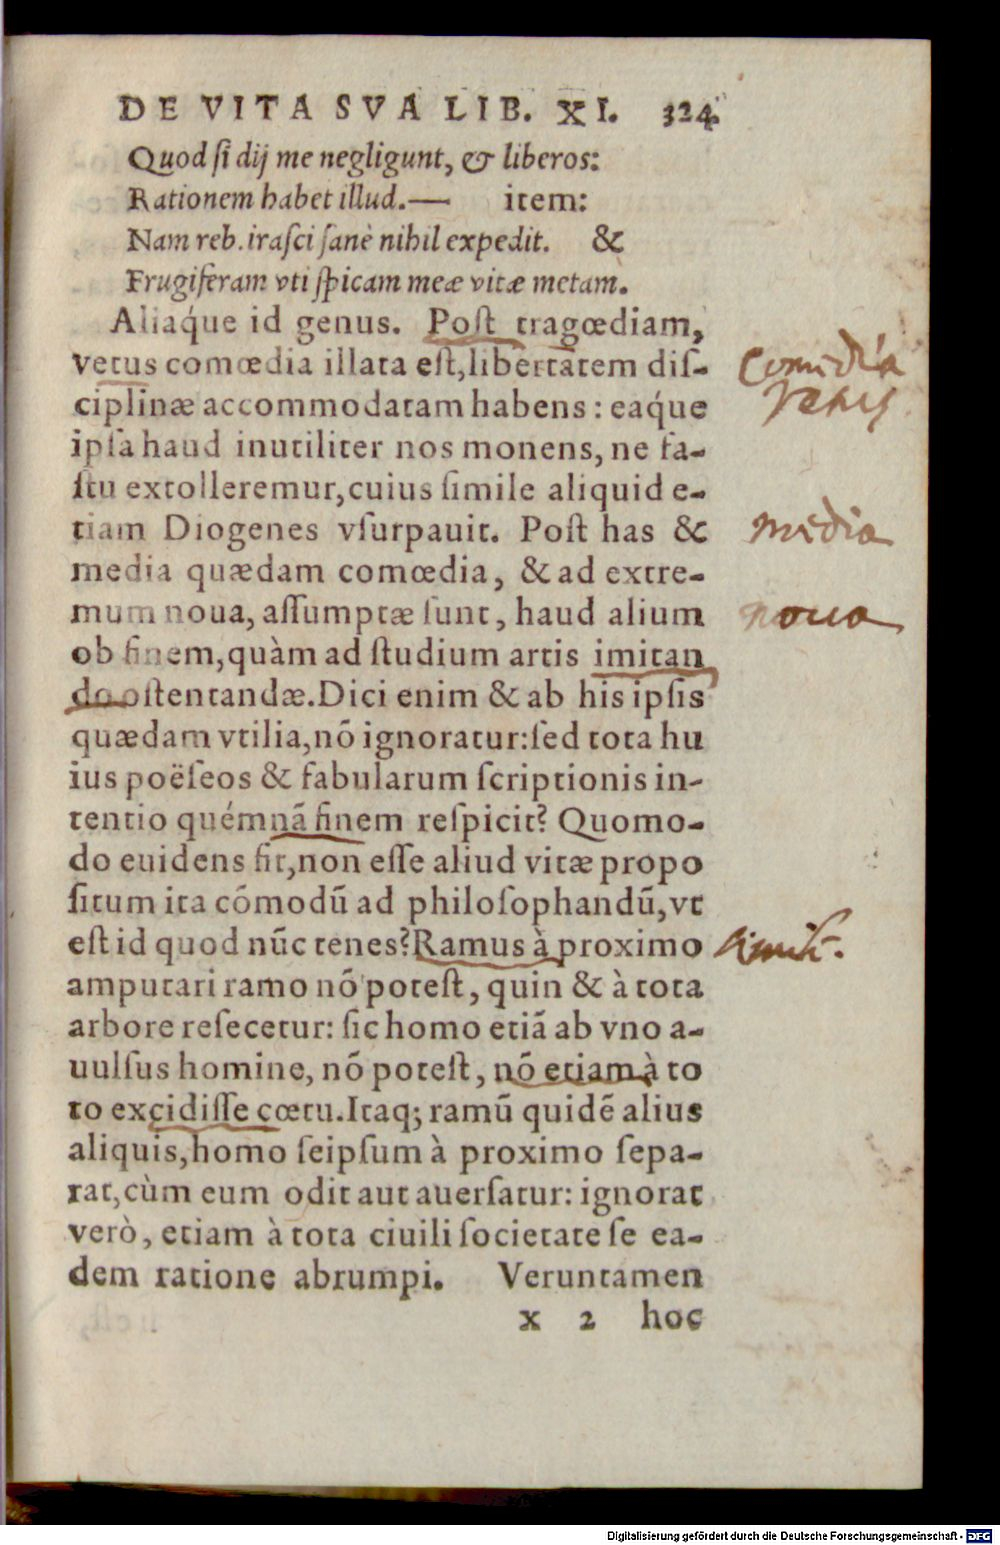 DE VITA SVA LIB. XI. 324
Quod ſi dij me negligunt, & liberos:
Rationem habet illud.— item:
Nam reb. iraſci ſanè nihil expedit. &
Frugiferam vti ſpicam meæ vitæ metam.
Aliaq́ue id genus. Post tragœdiam,
vetus comœdia illata eſt, libertatem diſ-
ciplinæ accommodatam habens: eaq́ue
ipſa haud inutiliter nos monens, ne fa-
ſtu extolleremur, cuius ſimile aliquid e-
tiam Diogenes vſurpauit. Poſt has &
media quædam comœdia, & ad extre-
mum noua, aſſumptæ ſunt, haud alium
ob finem, quàm ad ſtudium artis imitan
do oſtentandæ. Dici enim & ab his ipſis
quædam vtilia, nō ignoratur: ſed tota hu
ius poëſeos & fabularum ſcriptionis in-
tentio quémnā finem reſpicit? Quomo-
do euidens ſit, non eſſe aliud vitæ propo
ſitum ita cōmodū ad philoſophandū, vt
eſt id quod nūc tenes? Ramus à proximo
amputari ramo nō poteſt, quin & à tota
arbore reſecetur: ſic homo etiā ab vno a-
uulſus homine, nō poteſt, nō etiam à to
to excidiſſe cœtu. Itaq; ramū quidē alius
aliquis, homo ſeipſum à proximo ſepa-
rat, cùm eum odit aut auerſatur: ignorat
verò, etiam à tota ciuili ſocietate ſe ea-
dem ratione abrumpi. Veruntamen
x 2 hoc
Comœdia
Vetus
media
noua
Digitalisierung gefördert durch die Deutsche Forschungsgemeinschaft - DFG